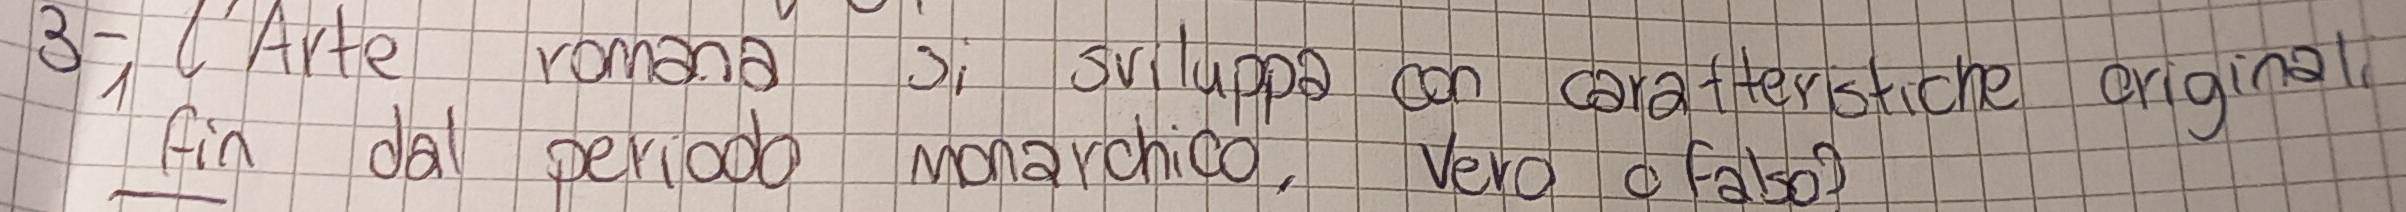 3-1 L'Arte romana si sviluppa con caratteristiche originali
fin dal periodo monarchico, Vero o Falso?